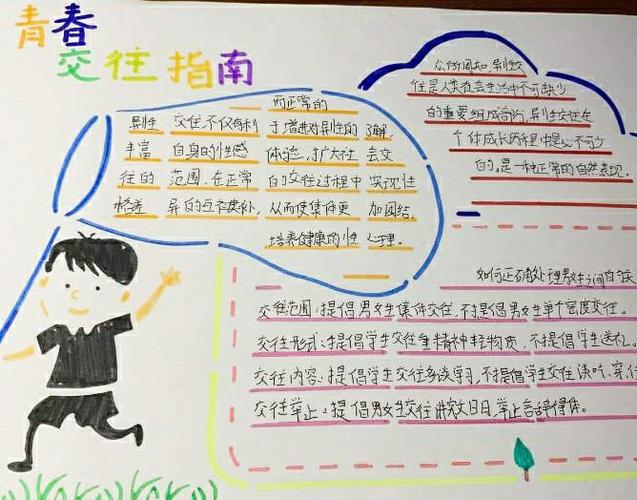 青春
交往指南
而正常的
异性 交往不仅有利 于增进对异性的 了解,
丰富 自身的性感 体验,扩大社 会交
往的 范围,在正常 的交往过程中 实现性
格差 异的互补,从而使集体更 加团结,
培养健康的性 心理。
众所周知,异性交
往是人类社会生活中不可缺少
的重要组成部分,异性交往在
个体成长历程中是必不可少
的,是一种正常的自然表现。
如何正确处理男女生之间
交往范围:提倡男女生集体交往,不提倡男女生单个密度交往。
交往形式:提倡学生交往重精神轻物质,不提倡学生送礼。
交往内容:提倡学生交往多谈学习,不提倡学生交往谈吃、穿、
交往举止:提倡男女生交往讲文明,举止言辞得体。